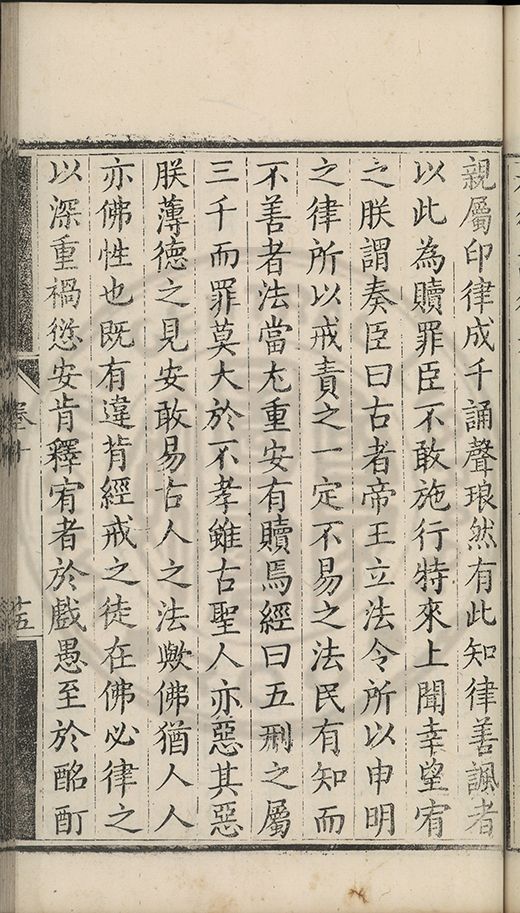 親屬印律成千誦聲琅然有此知律善諷者
以此為贖罪臣不敢施行特來上聞幸望宥
之朕謂奏臣曰古者帝王立法令所以申明
之律所以戒責之一定不易之法民有知而
不善者法當尤重安有贖焉經曰五刑之屬
三千而罪莫大於不孝雖古聖人亦惡其惡
朕薄德之見安敢易古人之法歟佛猶人人
亦佛性也既有違背經戒之徒在佛必律之
以深重禍愆安肯釋宥者於戲愚至於酩酊
卷十
十五